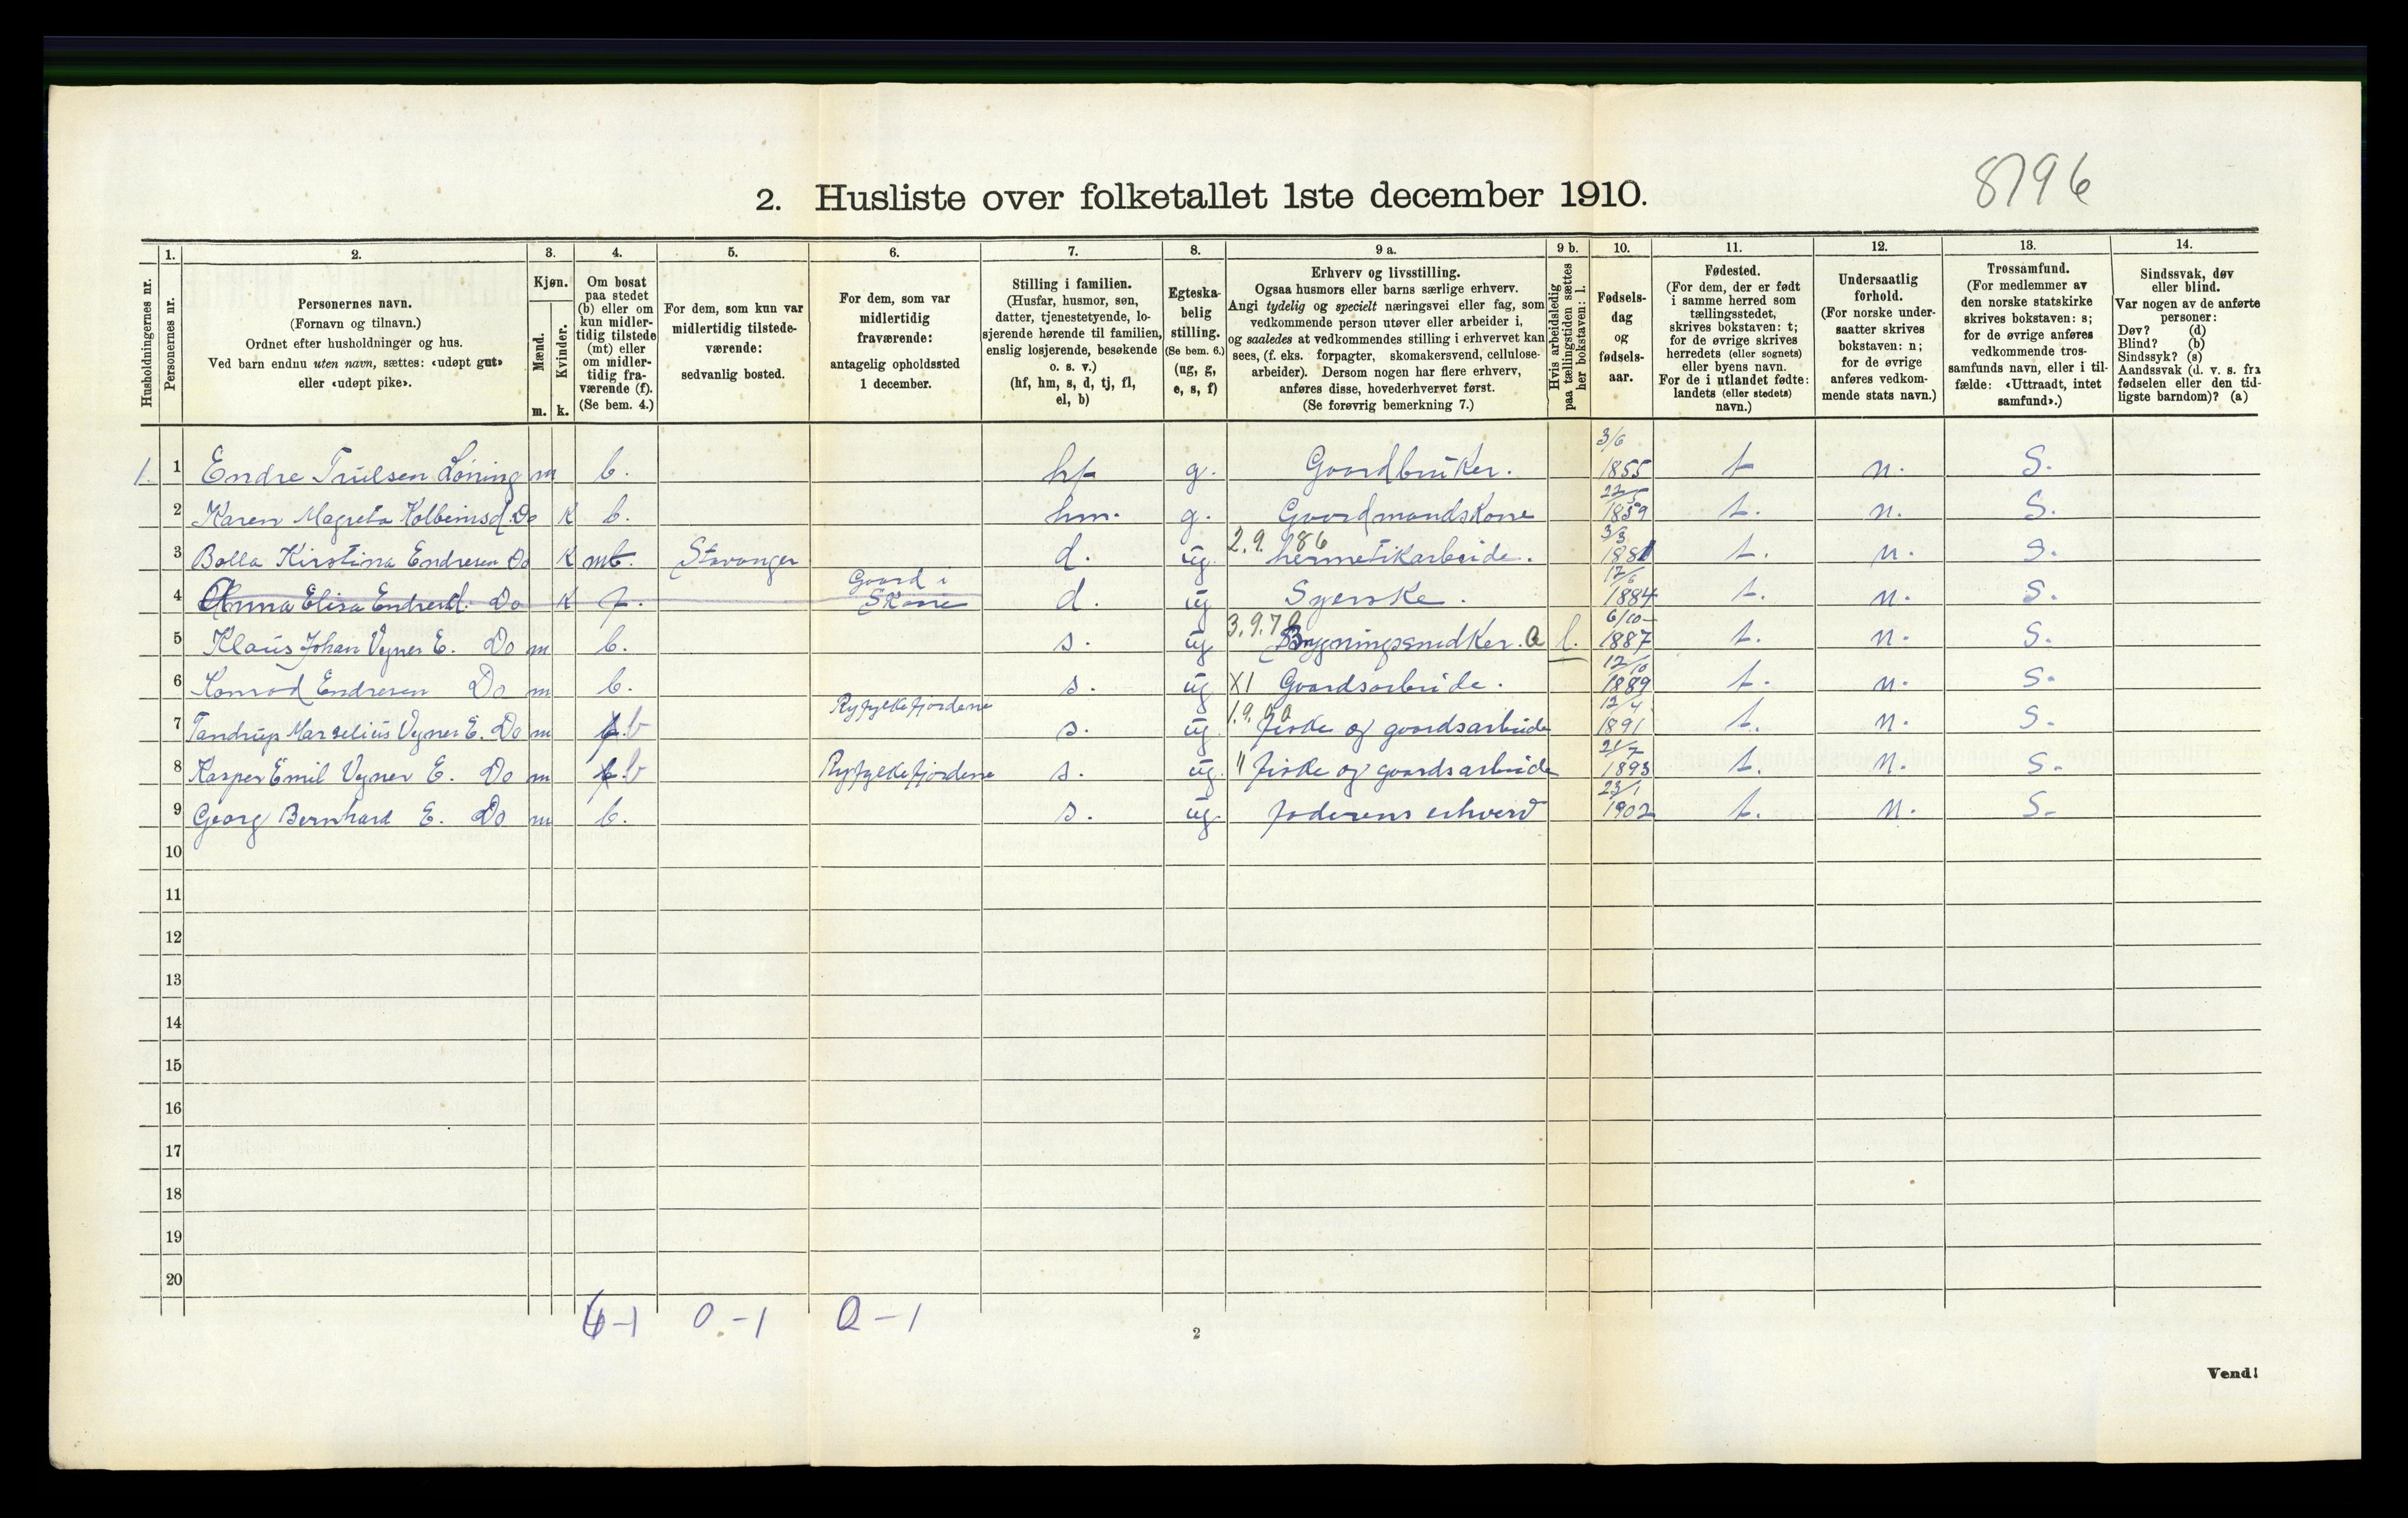 8796
2. Husliste over folketallet 1ste december 1910.
1. 2. 3. 4. 5. 6. 7. 8. 9 a. 9 b. 10. 11. 12. 13. 14.
Husholdningernes nr.
Personernes nr.
Personernes navn.
(Fornavn og tilnavn.)
Ordnet efter husholdninger og hus.
Ved barn endnu uten navn, sættes: «udøpt gut»
eller «udøpt pike».
Kjøn.
Mænd.
Kvinder.
m. k.
Om bosat
paa stedet
(b) eller om
kun midler-
tidig tilstede
(mt) eller
om midler-
tidig fra-
værende (f).
(Se bem. 4.)
For dem, som kun var
midlertidig tilstede-
værende:
sedvanlig bosted.
For dem, som var
midlertidig
fraværende:
antagelig opholdssted
1 december.
Stilling i familien.
(Husfar, husmor, søn,
datter, tjenestetyende, lo-
sjerende hørende til familien,
enslig losjerende, besøkende
o. s. v.)
(hf, hm, s, d, tj, fl,
el, b)
Egteska-
belig
stilling.
(Se bem. 6.)
(ug, g,
e, s, f)
Erhverv og livsstilling.
Ogsaa husmors eller barns særlige erhverv.
Angi tydelig og specielt næringsvei eller fag, som
vedkommende person utøver eller arbeider i,
og saaledes at vedkommendes stilling i erhvervet kan
sees, (f. eks. forpagter, skomakersvend, cellulose-
arbeider). Dersom nogen har flere erhverv,
anføres disse, hovederhvervet først.
(Se forøvrig bemerkning 7.)
Hvis arbeidsledig
paa tællingstiden sættes
her bokstaven: l.
Fødsels-
dag
og
fødsels-
aar.
Fødested.
(For dem, der er født
i samme herred som
tællingsstedet,
skrives bokstaven: t;
for de øvrige skrives
herredets (eller sognets)
eller byens navn.
For de i utlandet fødte:
landets (eller stedets)
navn.)
Undersaatlig
forhold.
(For norske under-
saatter skrives
bokstaven: n;
for de øvrige
anføres vedkom-
mende stats navn.)
Trossamfund.
(For medlemmer av
den norske statskirke
skrives bokstaven: s;
for de øvrige anføres
vedkommende tros-
samfunds navn, eller i til-
fælde: «Uttraadt, intet
samfund».)
Sindssvak, døv
eller blind.
Var nogen av de anførte
personer:
Døv? (d)
Blind? (b)
Sindssyk? (s)
Aandssvak (d. v. s. fra
fødselen eller den tid-
ligste barndom)? (a)
1. 1 Endre Trulsen Løning m b. hf g. Gaardbruker. 3/6 1855 t n. S.
2 Karen Magreta Kolbeinsd. Do k b. hm. g. Gaardmandskone 1859 t. n. S.
3 Bolla Kirstina Endresen Do k mt. Stavanger d. ug. 2.9.186 hermetikarbeide. 3/3 1881 t. n. S.
4 Anna Elisa Endresd. Do k f. Gaard i Skaare d. ug Syerske. 17/6 1884 t. n. S.
5 Klaus Johan Vgner E. Do m b. s. ug 3.9.7 Bygningssnedker. a l. 6/10 1887 t. n. S.
6 Konrad Endresen Do m b. s. ug XI Gaardsarbeide. 12/10 1889 t. n. S.
7 Tandrup Marselius Vgner E. Do m b Ryfylkefjordene s. ug. 1.9. fiske og gaardsarbeide 12/4 1891 t. n. S.
8 Kasper Emil Vgner E. Do m b Ryfylkefjordene s. ug. " fiske og gaardsarbeide 21/7 1893 t. n. S.
9 Georg Bernhard E. Do m b. s. ug. faderens erhverv 23/1 1902 t. n. S.
10
11
12
13
14
15
16
17
18
19
20
6-1 0-1 0-1
2
Vend!